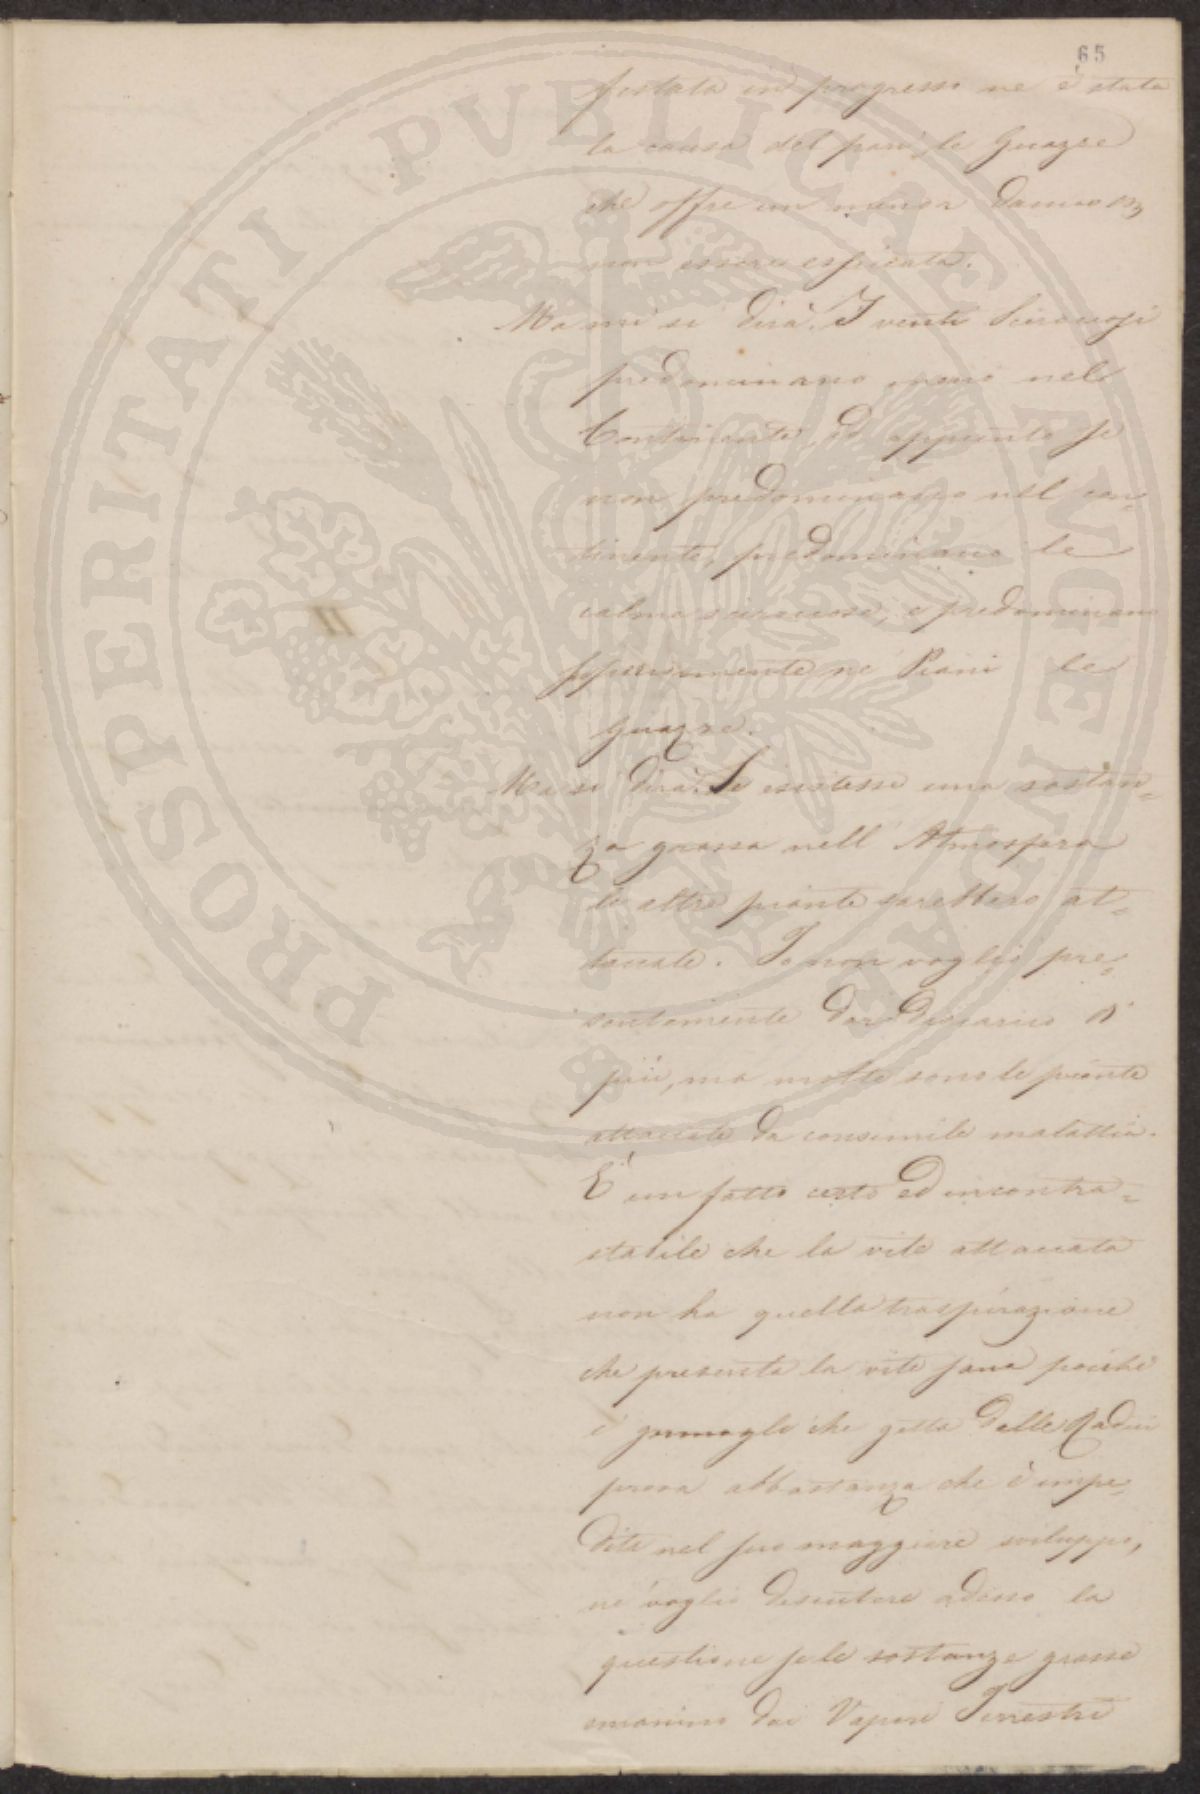 65
festata in progresso ne è stata
la causa del pari, le Guazze
che offre un minor danno
non essere
Ma mi si dirà. I venti Sciroccosi
predominano meno nel
Continente, ed appunto se
non predominano nel con-
tinente, predominano le
calme scirocose, e predominano
ne Piani le
guazze.
Ma si dirà. Se esistesse una sostan=
za grassa nell' Atmosfera
le altre piante sarebbero at=
taccate. Io non voglio pre=
sentemente dar discarico di
più, ma molte sono le piante
attaccate da consimile malattia.
È un fatto certo ed incontra=
stabile che la vite attaccata
non ha quella traspirazione
che presenta la vite sana poiché
i germogli che getta dalle Radici
prova abbastanza che è impe=
dita nel suo maggiore sviluppo,
ne voglio discutere adesso la
questione se le sostanze grasse
emanino dai Vapori Terrestri
PROSPERITATI PVBLICAE AVGENDAE